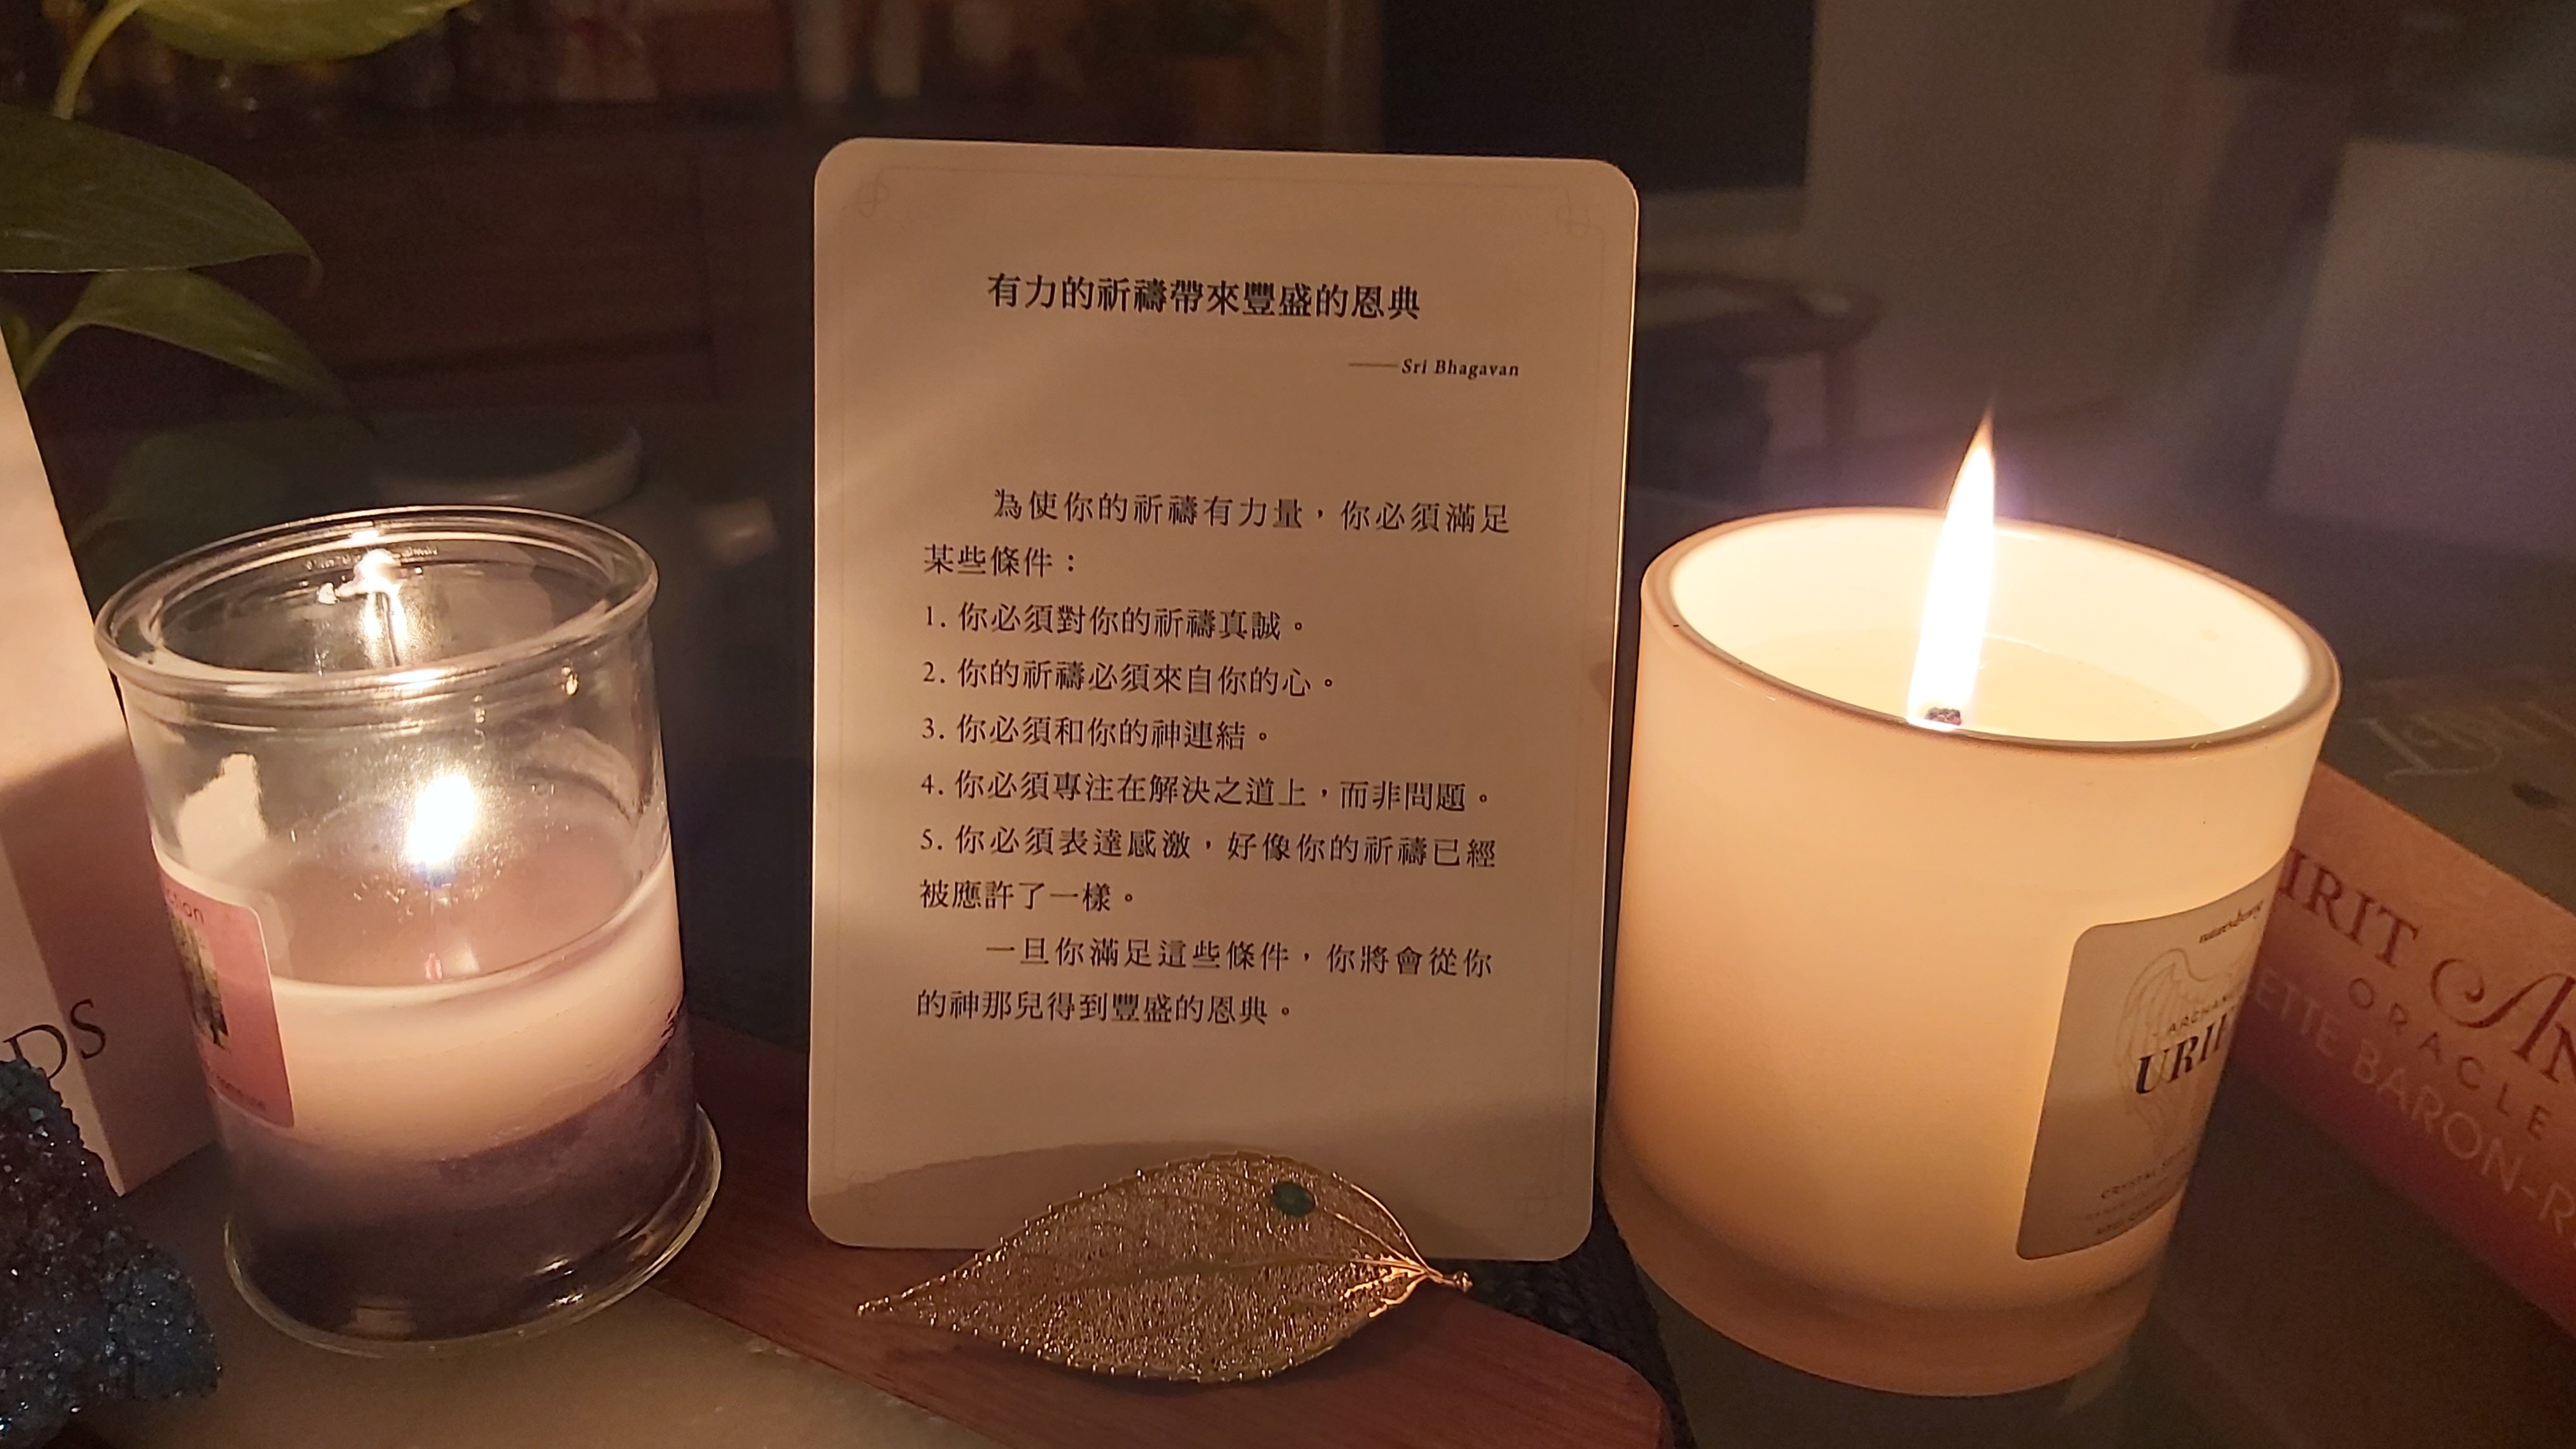 有力的祈禱帶來豐盛的恩典
——Sri Bhagavan
為使你的祈禱有力量，你必須滿足
某些條件：
1. 你必須對你的祈禱真誠。
2. 你的祈禱必須來自你的心。
3. 你必須和你的神連結。
4. 你必須專注在解決之道上，而非問題。
5. 你必須表達感激，好像你的祈禱已經
被應許了一樣。
一旦你滿足這些條件，你將會從你
的神那兒得到豐盛的恩典。
DS
ction
URI
IRIT
ORACLE
ETTE BARON-R